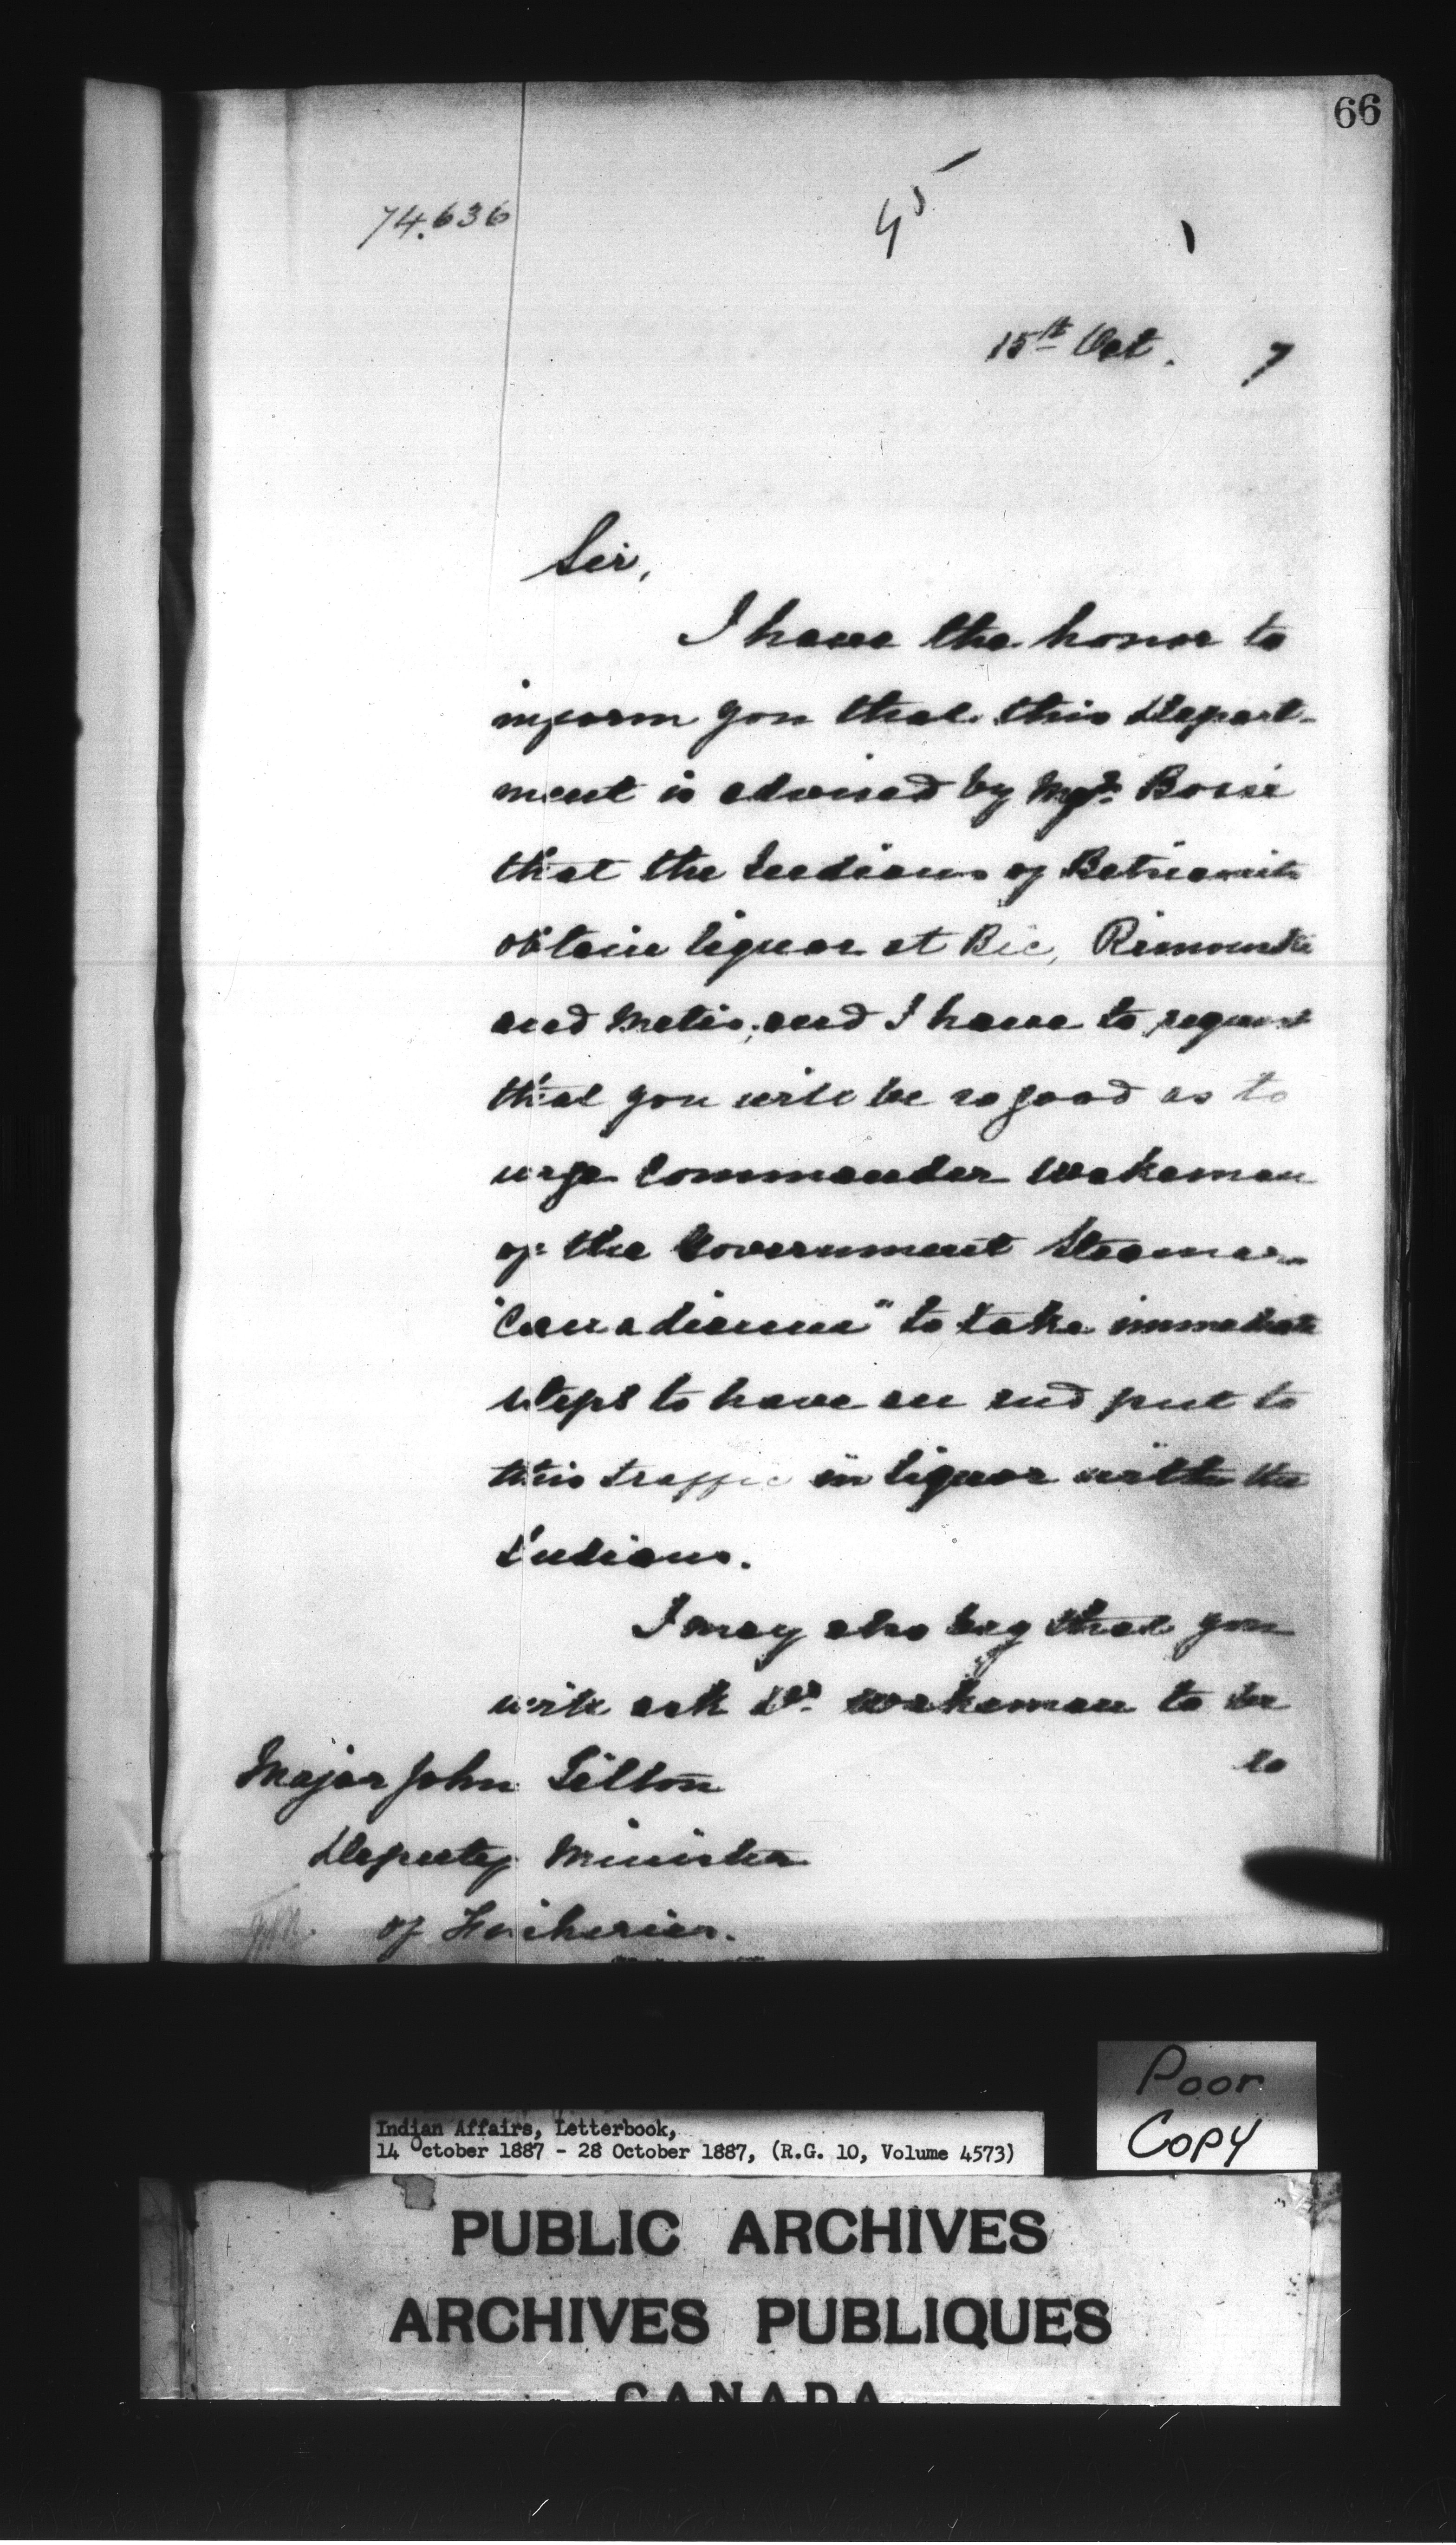 66
74.636
45
15th Oct. 7
Sir,
I have the honor to
inform you that this Depart-
ment is advised by Mgr. Bossé
that the Indians of Betsiamits
obtain liquor at Bic, Rimouski
and Metis, and I have to request
that you will be so good as to
urge Commander Wakeman
of the Government Steamer
"Canadienne" to take immediate
steps to have an end put to
this traffic in liquor with the
Indians.
I may also beg that you
will ask Dr. Wakeman to be
so
Major John Tilton
Deputy Minister
of Fisheries.
Poor
Copy
Indian Affairs, Letterbook,
14 October 1887 - 28 October 1887, (R.G. 10, Volume 4573)
PUBLIC ARCHIVES
ARCHIVES PUBLIQUES
CANADA